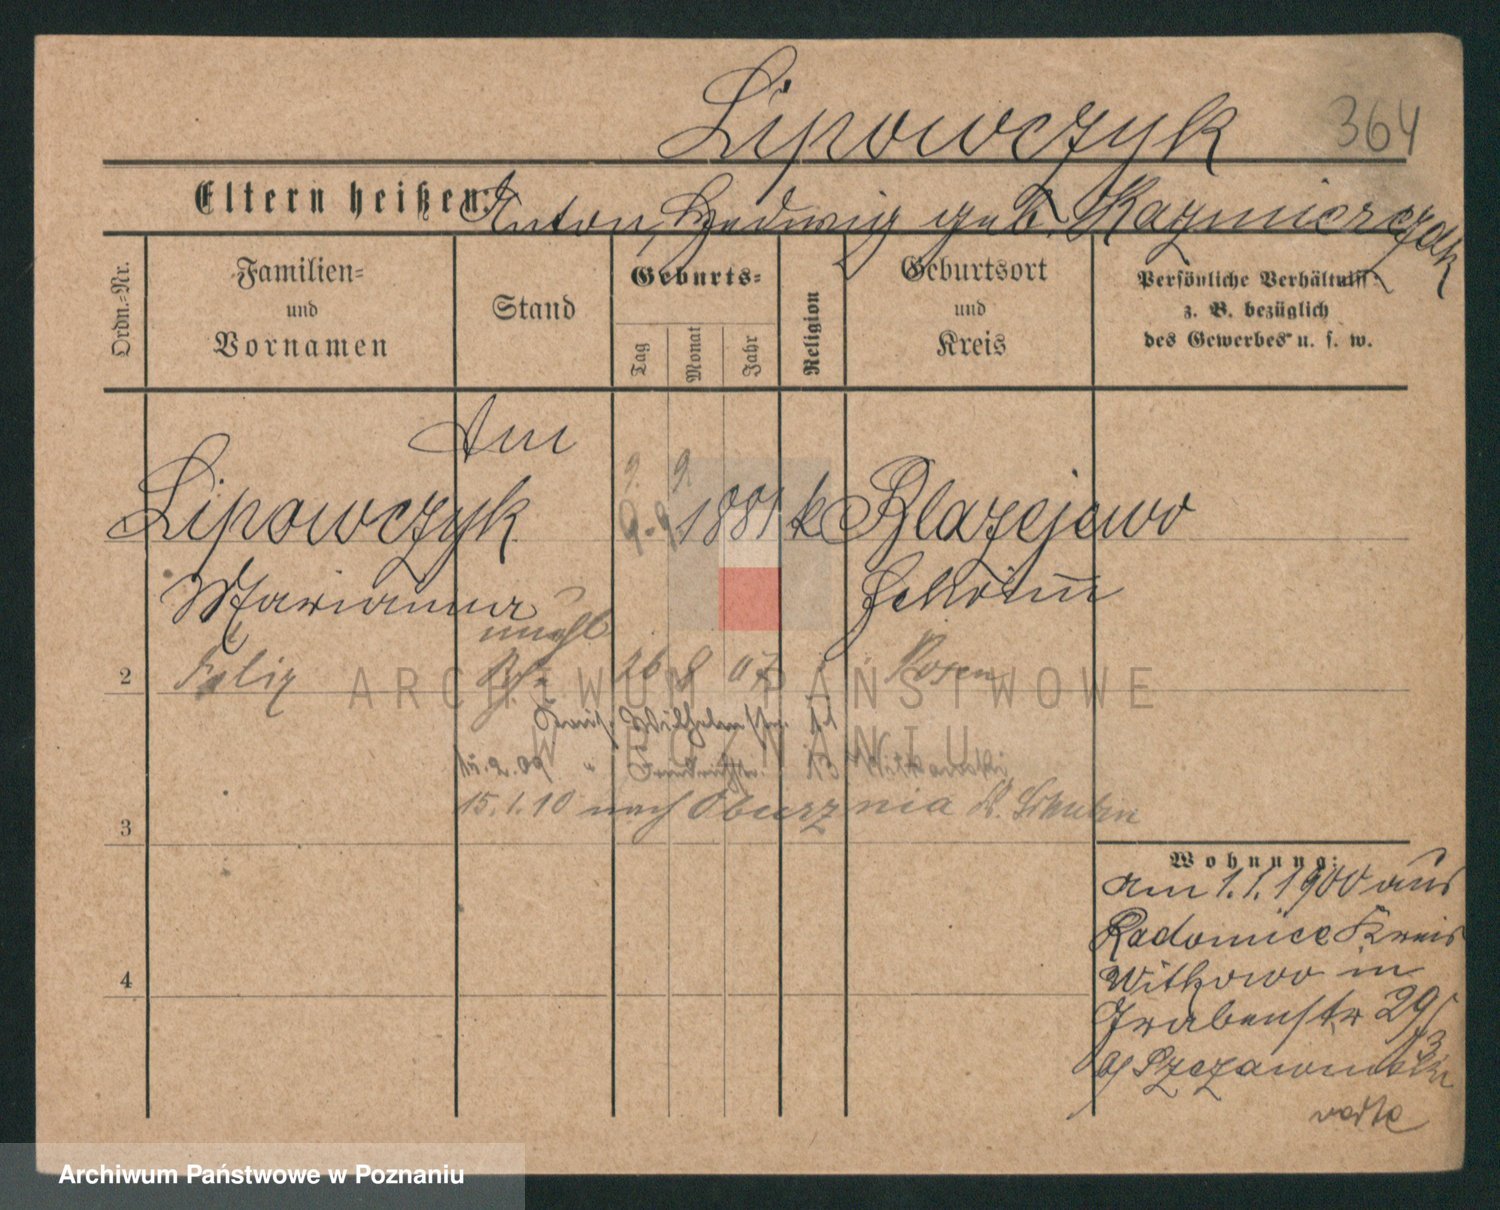 Lipowczyk
364
Eltern heißen: Anton, Hedwig geb. Kazmierczak
Ordn.=Nr.
Familien=
und
Vornamen
Stand
Geburts=
Tag
Monat
Jahr
Religion
Geburtsort
und
Kreis
Persönliche Verhältnisse
z. B. bezüglich
des Gewerbes u. s. w.
9. 9.
Lipowczyk 9. 9 1881 k Blazejewo
Marianna Schrimm
unehl
2 Felix 26 8 07 Posen
Wilhelmstr. 11
15.2.09 " Friedrichstr. 13 Witkowski
15.1.10 nach
3
Wohnung:
am 1.1.1900 aus
Radomice Kreis
4
Witkowo in
Grabenstr 29/
13
b/
ARCHIWUM PAŃSTWOWE
W POZNANIU
Archiwum Państwowe w Poznaniu